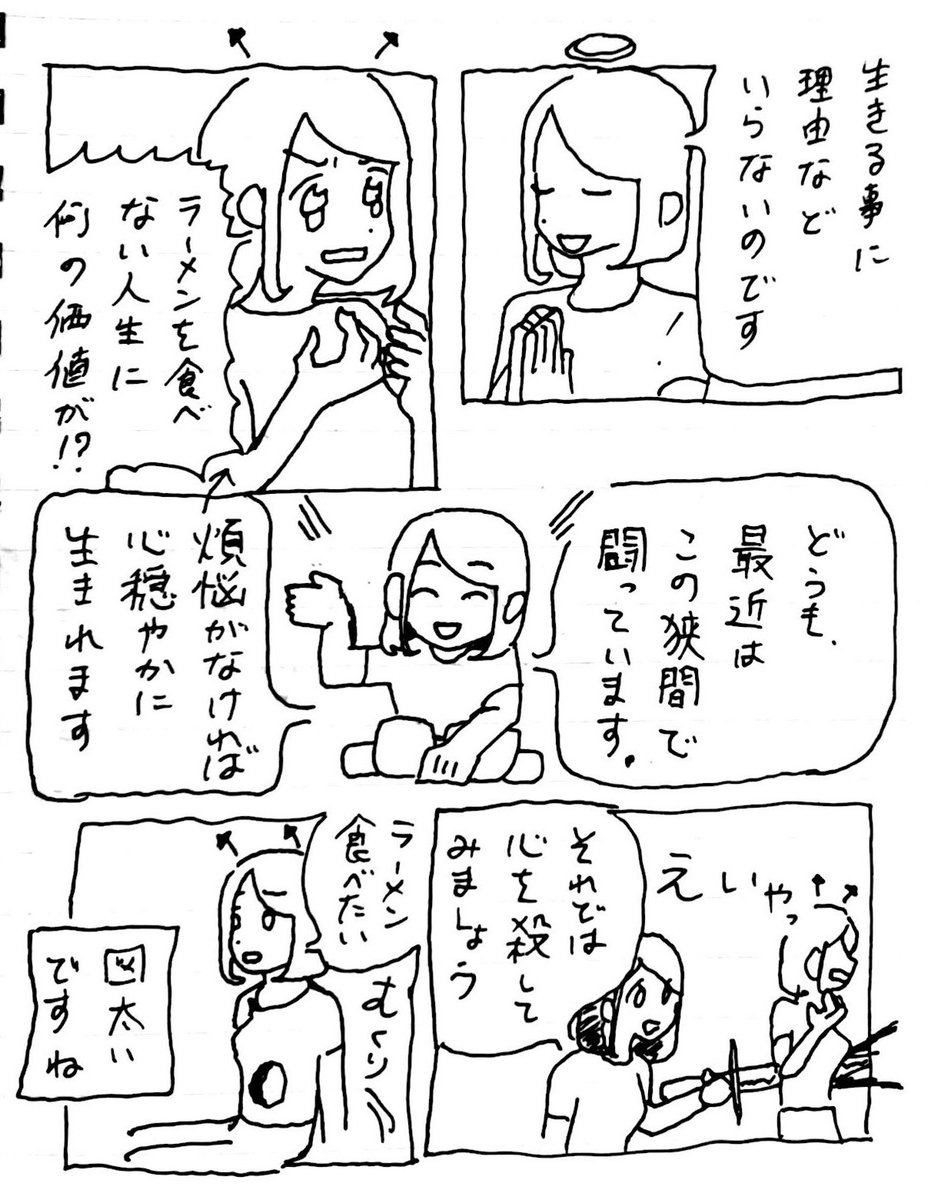 生きる事に
理由など
いらないのです
ラーメンを食べ
ない人生に
何の価値が!?
どうも、
最近は
この狭間で
闘っています。
煩悩がなければ
心穏やかに
生きれます
それでは
心を殺して
みましょう
えいやっ
ラーメン
食べたい
むくり
図太い
ですね